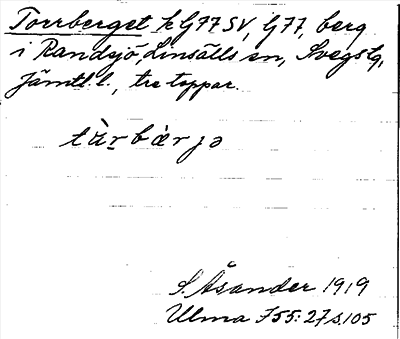 Torrberget k G77 SV, G77, berg
i Randsjö, Linsälls sn, Svegs tg,
Jämtl. l., tre toppar.
tàrbærjə
S. Åsander 1919
Ulma 755:27 s. 105